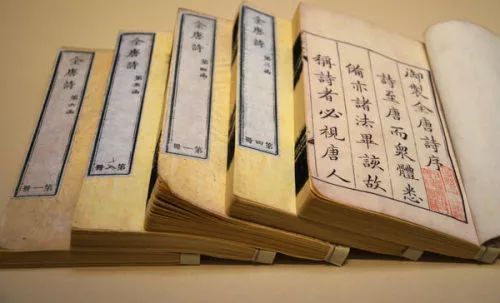 御製全唐詩序
詩至唐而衆體悉
備亦諸法畢該故
稱詩者必視唐人
全唐詩
第三函
第四冊
全唐詩
第四函
第一冊
全唐詩
第五函
第八冊
全唐詩
第六函
第一冊